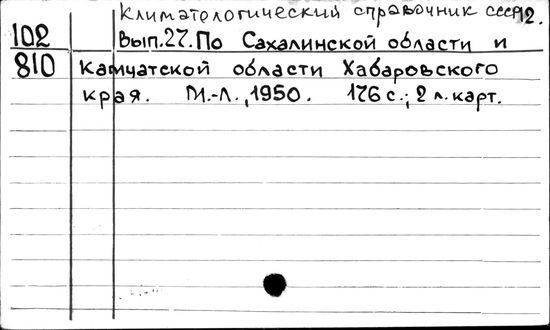 Климатологический справочник СССР 12.
102 Вып.27. По Сахалинской области и
810 Камчатской области Хабаровского
края. М.-Л., 1950. 176 с.; 2 л. карт.